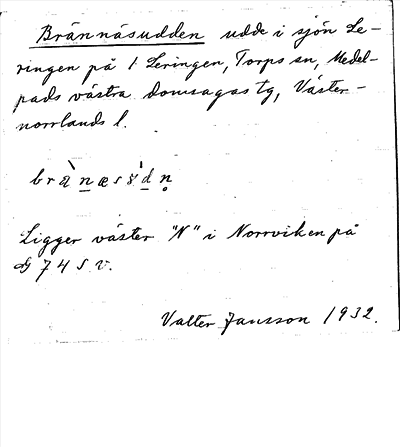 Brännäsudden udde i sjön Le-
ringen på 1 Leringen, Torps sn, Medel-
pads västra domsagas tg, Väster-
norrlands l.
Ligger väster "N" i Norrviken på
G 74 S v.
Valter Jansson 1932.